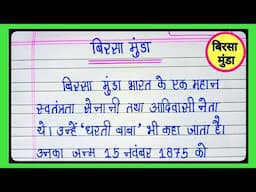 बिरसा मुंडा
बिरसा मुंडा
बिरसा मुंडा भारत के एक महान
स्वतंत्रता सेनानी तथा आदिवासी नेता
थे। उन्हें 'धरती बाबा' भी कहा जाता है।
उनका जन्म 15 नवंबर 1875 को